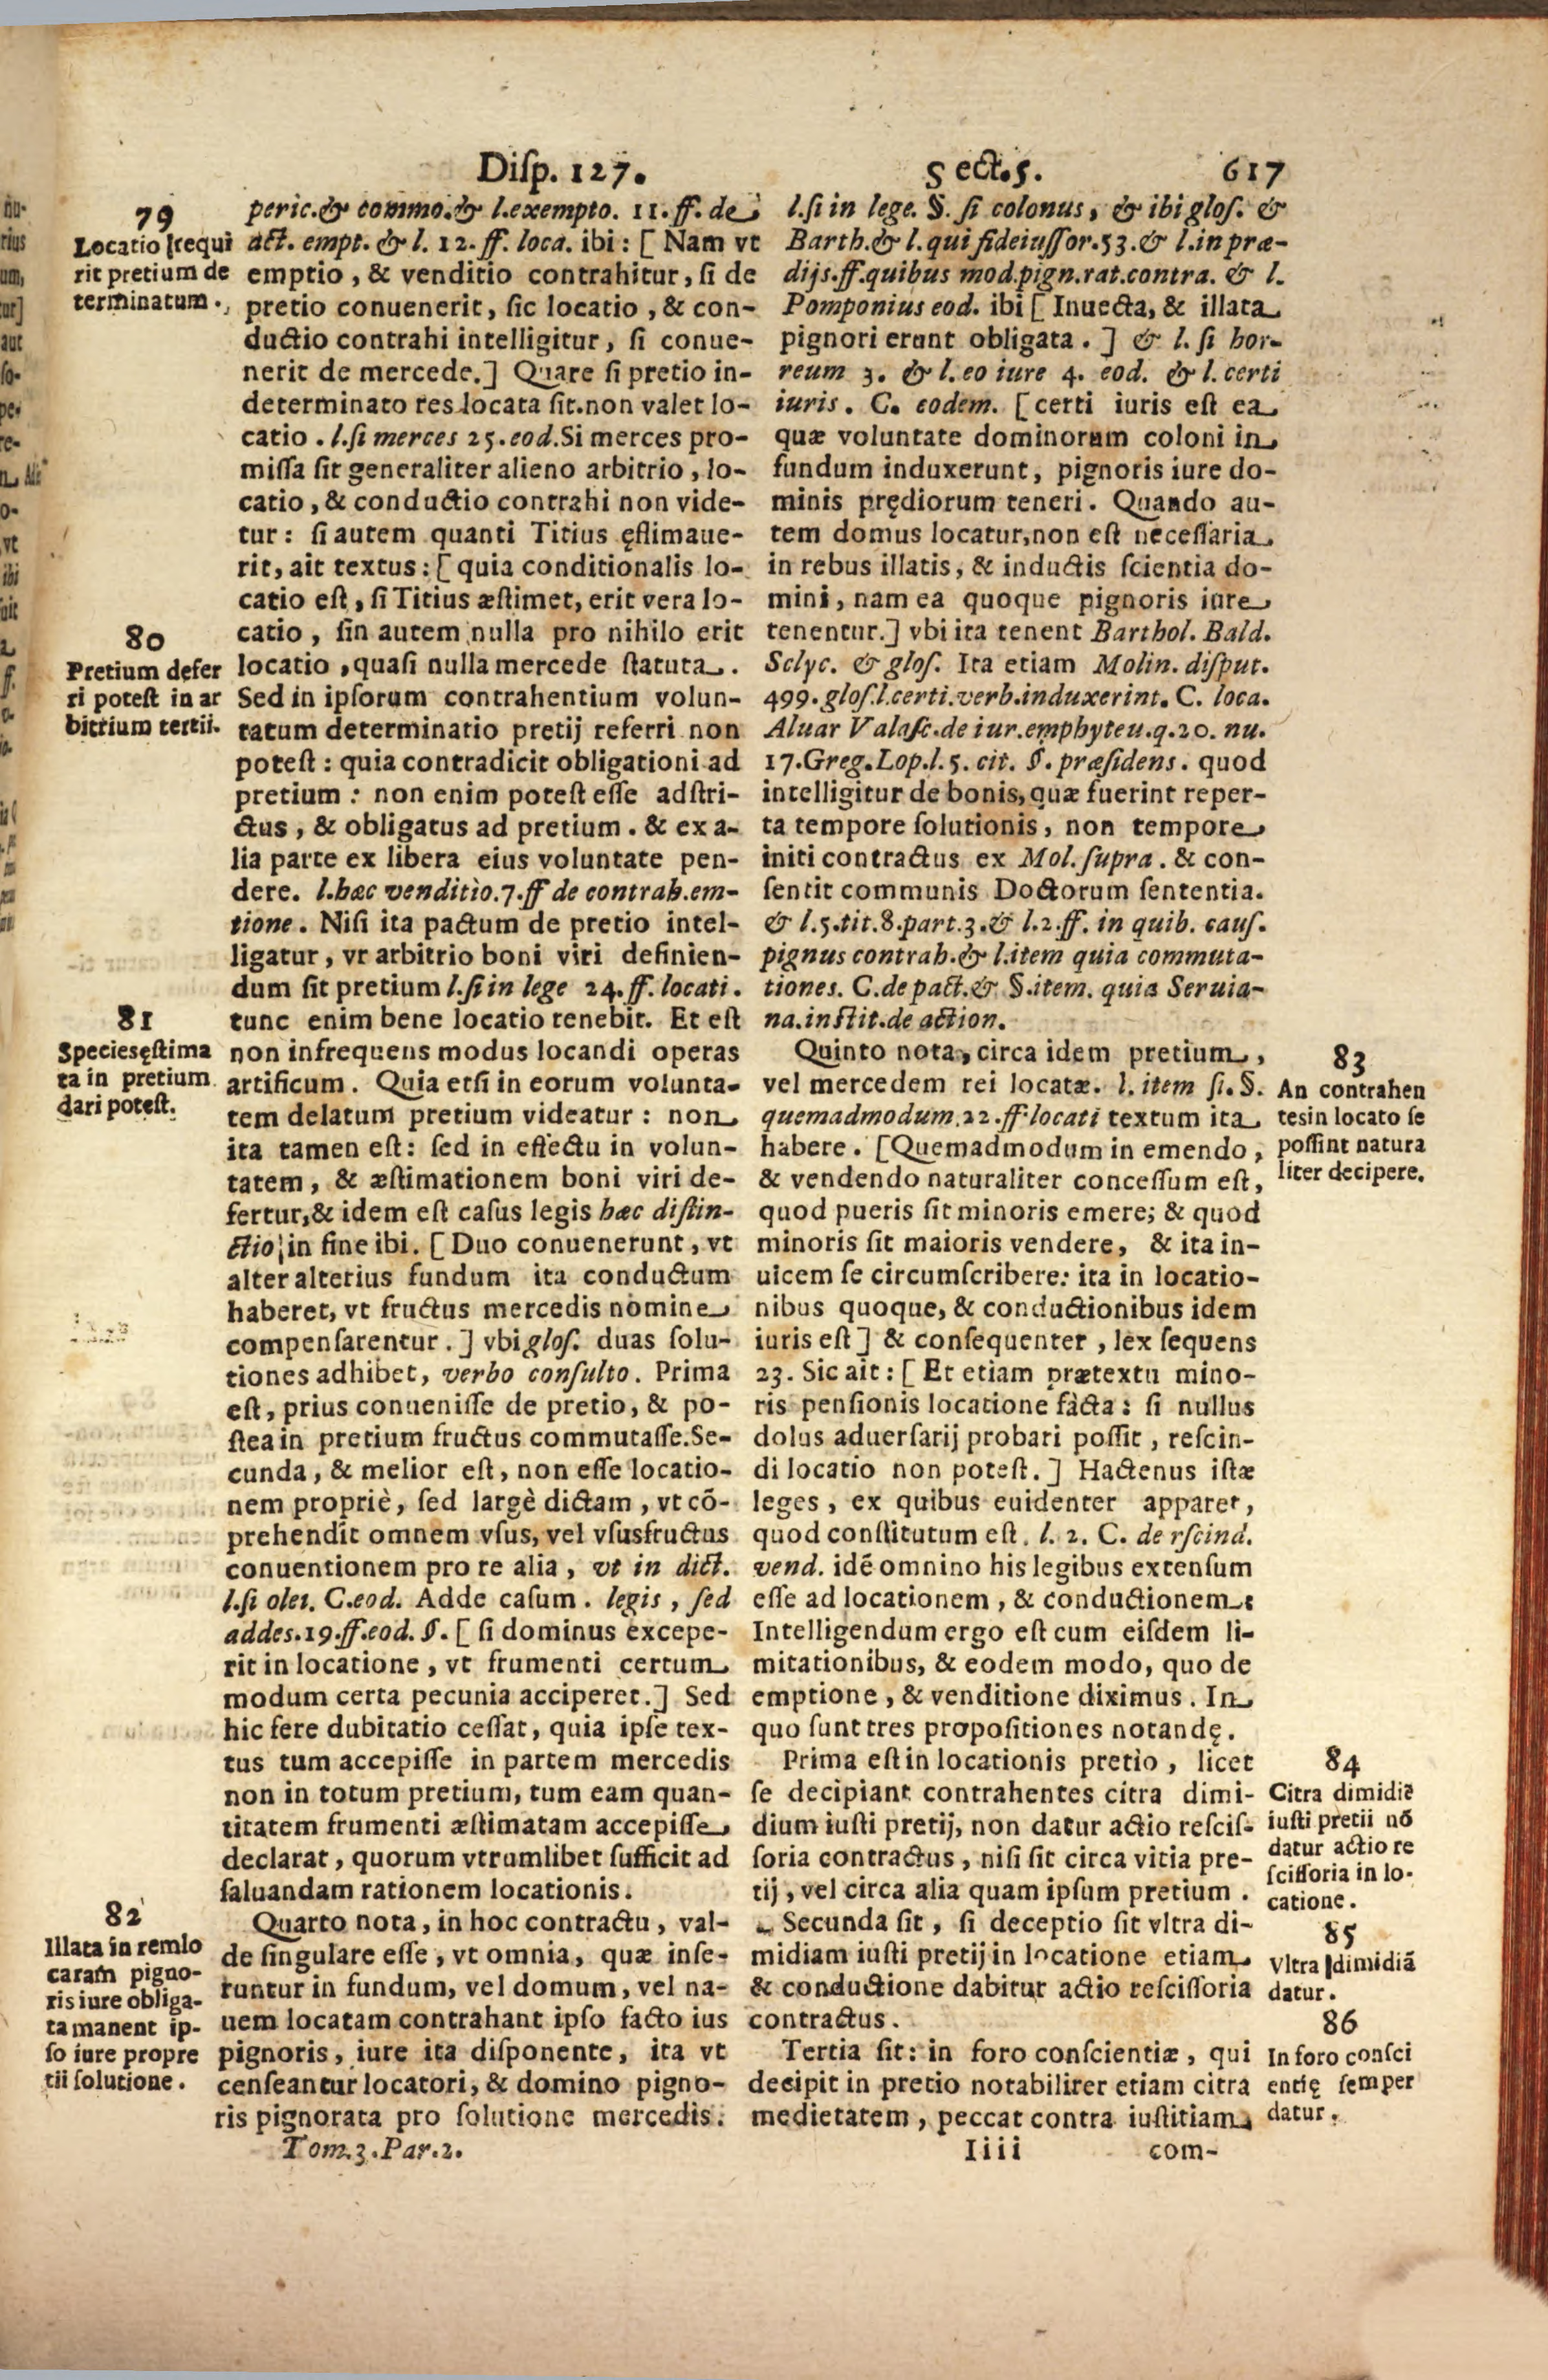 Disp. 127. Sect.5. 617
79
Locatio requi
rit pretium de
terminatum.
80
Pretium defer
ri potest in ar
bitrium tertii.
81
Speciesęstima
ta in pretium
dari potest.
82
Illata in remlo
catam pigno-
ris iure obliga-
ta manent ip-
so iure propre
tii solutione.
peric.& commo.& l.exempto. 11. ff. de
act. empt. & l. 12. ff. loca. ibi: [Nam vt
emptio, & venditio contrahitur, si de
pretio conuenerit, sic locatio, & con-
ductio contrahi intelligitur, si conue-
nerit de mercede.] Quare si pretio in-
determinato res locata sit.non valet lo-
catio. l.si merces 25.eod.Si merces pro-
missa sit generaliter alieno arbitrio, lo-
catio, & conductio contrahi non vide-
tur: si autem quanti Titius ęstimaue-
rit, ait textus: [quia conditionalis lo-
catio est, si Titius æstimet, erit vera lo-
catio, sin autem nulla pro nihilo erit
locatio, quasi nulla mercede statuta.
Sed in ipsorum contrahentium volun-
tatum determinatio pretij referri non
potest: quia contradicit obligationi ad
pretium: non enim potest esse adstri-
ctus, & obligatus ad pretium. & ex a-
lia parte ex libera eius voluntate pen-
dere. l.hæc venditio.7.ff de contrah.em-
tione. Nisi ita pactum de pretio intel-
ligatur, vr arbitrio boni viri definien-
dum sit pretium l.si in lege 24.ff. locati.
tunc enim bene locatio tenebit. Et est
non infrequens modus locandi operas
artificum. Quia etsi in eorum volunta-
tem delatum pretium videatur: non
ita tamen est: sed in effectu in volun-
tatem, & æstimationem boni viri de-
fertur,& idem est casus legis hæc distin-
ctio in fine ibi. [Duo conuenerunt, vt
alter alterius fundum ita conductum
haberet, vt fructus mercedis nomine
compensarentur.] vbi glos. duas solu-
tiones adhibet, verbo consulto. Prima
est, prius conuenisse de pretio, & po-
stea in pretium fructus commutasse.Se-
cunda, & melior est, non esse locatio-
nem propriè, sed largè dictam, vt cõ-
prehendit omnem vsus, vel vsusfructus
conuentionem pro re alia, vt in dict.
l.si olei. C.eod. Adde casum. legis, sed
addes.19.ff.eod. §. [si dominus excepe-
rit in locatione, vt frumenti certum
modum certa pecunia acciperet.] Sed
hic fere dubitatio cessat, quia ipse tex-
tus tum accepisse in partem mercedis
non in totum pretium, tum eam quan-
titatem frumenti æstimatam accepisse
declarat, quorum vtrumlibet sufficit ad
saluandam rationem locationis.
Quarto nota, in hoc contractu, val-
de singulare esse, vt omnia, quæ infe-
runtur in fundum, vel domum, vel na-
uem locatam contrahant ipso facto ius
pignoris, iure ita disponente, ita vt
censeantur locatori, & domino pigno-
ris pignorata pro solutione mercedis.
Tom.3.Par.2.
l.si in lege. §. si colonus, & ibi glos. &
Barth.& l.qui fideiussor.53.& l.in præ-
dijs.ff.quibus mod.pign.rat.contra. & l.
Pomponius eod. ibi [Inuecta, & illata
pignori erunt obligata.] & l. si hor-
reum 3. & l.eo iure 4. eod. & l. certi
iuris. C. eodem. [certi iuris est ea
quæ voluntate dominorum coloni in
fundum induxerunt, pignoris iure do-
minis prędiorum teneri. Quando au-
tem domus locatur,non est necessaria
in rebus illatis, & inductis scientia do-
mini, nam ea quoque pignoris iure
tenentur.] vbi ita tenent Barthol. Bald.
Sclyc. & glos. Ita etiam Molin. disput.
499.glos.l.certi.verb.induxerint. C. loca.
Aluar Valasc.de iur.emphyteu.q.20. nu.
17.Greg.Lop.l.5. cit. §. præsidens. quod
intelligitur de bonis, quæ fuerint reper-
ta tempore solutionis, non tempore
initi contractus ex Mol. supra. & con-
sentit communis Doctorum sententia.
& l.5.tit.8.part.3.& l.2.ff. in quib. caus.
pignus contrah.& l.item quia commuta-
tiones. C.de pact.& §.item. quia Seruia-
na.instit.de action.
Quinto nota, circa idem pretium,
vel mercedem rei locatæ. l. item si. §.
quemadmodum.22.ff.locati textum ita
habere. [Quemadmodum in emendo,
& vendendo naturaliter concessum est,
quod pueris sit minoris emere; & quod
minoris sit maioris vendere, & ita in-
uicem se circumscribere: ita in locatio-
nibus quoque, & conductionibus idem
iuris est] & consequenter, lex sequens
23. Sic ait: [Et etiam prætextu mino-
ris pensionis locatione facta: si nullus
dolus aduersarij probari possit, rescin-
di locatio non potest.] Hactenus istæ
leges, ex quibus euidenter apparet,
quod constitutum est. l. 2. C. de rscind.
vend. idē omnino his legibus extensum
esse ad locationem, & conductionem:
Intelligendum ergo est cum eisdem li-
mitationibus, & eodem modo, quo de
emptione, & venditione diximus. In
quo sunt tres propositiones notandę.
Prima est in locationis pretio, licet
se decipiant contrahentes citra dimi-
dium iusti pretij, non datur actio rescis-
soria contractus, nisi sit circa vitia pre-
tij, vel circa alia quam ipsum pretium.
Secunda sit, si deceptio sit vltra di-
midiam iusti pretij in locatione etiam
& conductione dabitur actio rescissoria
contractus.
Tertia sit: in foro conscientiæ, qui
decipit in pretio notabiliter etiam citra
medietatem, peccat contra iustitiam
Iiii com-
83
An contrahen
tesin locato se
possint natura
liter decipere.
84
Citra dimidiē
iusti pretii nō
datur actio re
scissoria in lo-
catione.
85
Vltra dimidiā
datur.
86
In foro consci
entię semper
datur.